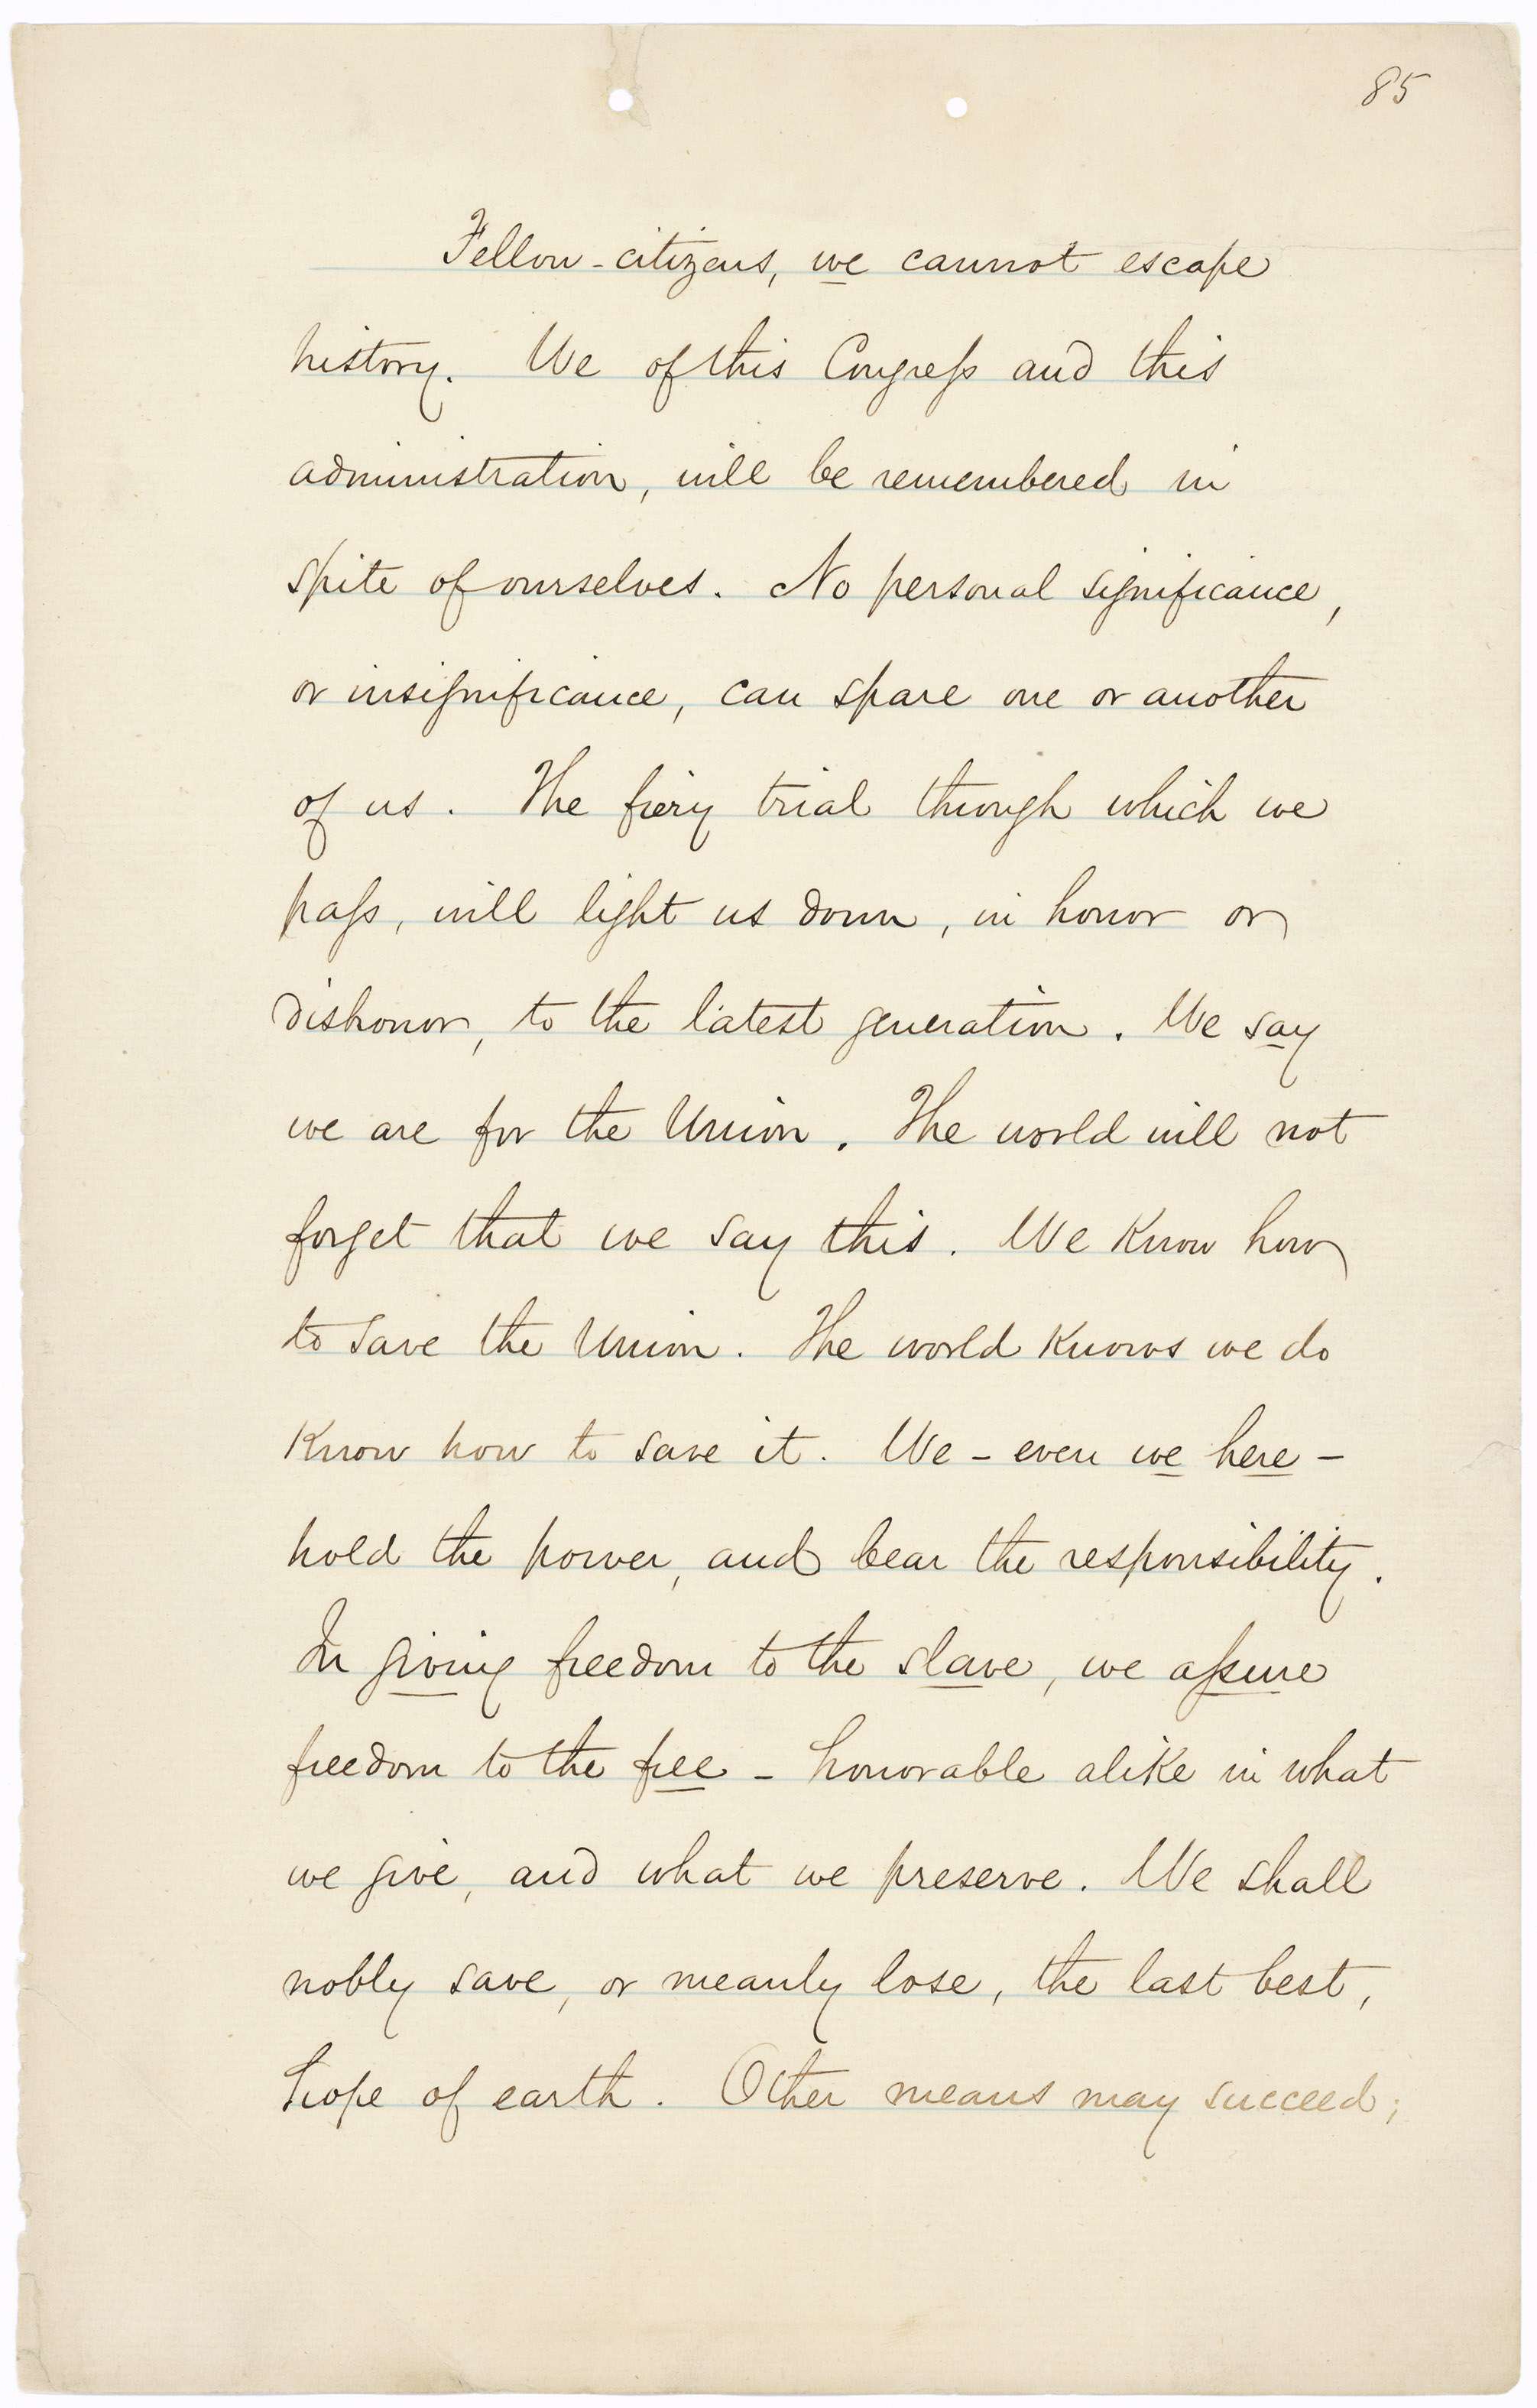 85
Fellow-citizens, we cannot escape
history. We of this Congress and this
administration, will be remembered in
spite of ourselves. No personal significance,
or insignificance, can spare one or another
of us. The fiery trial through which we
pass, will light us down, in honor or
dishonor, to the latest generation. We say
we are for the Union. The world will not
forget that we say this. We know how
to save the Union. The world knows we do
know how to save it. We - even we here -
hold the power, and bear the responsibility.
In giving freedom to the slave, we assure
freedom to the free - honorable alike in what
we give, and what we preserve. We shall
nobly save, or meanly lose, the last best,
hope of earth. Other means may succeed;